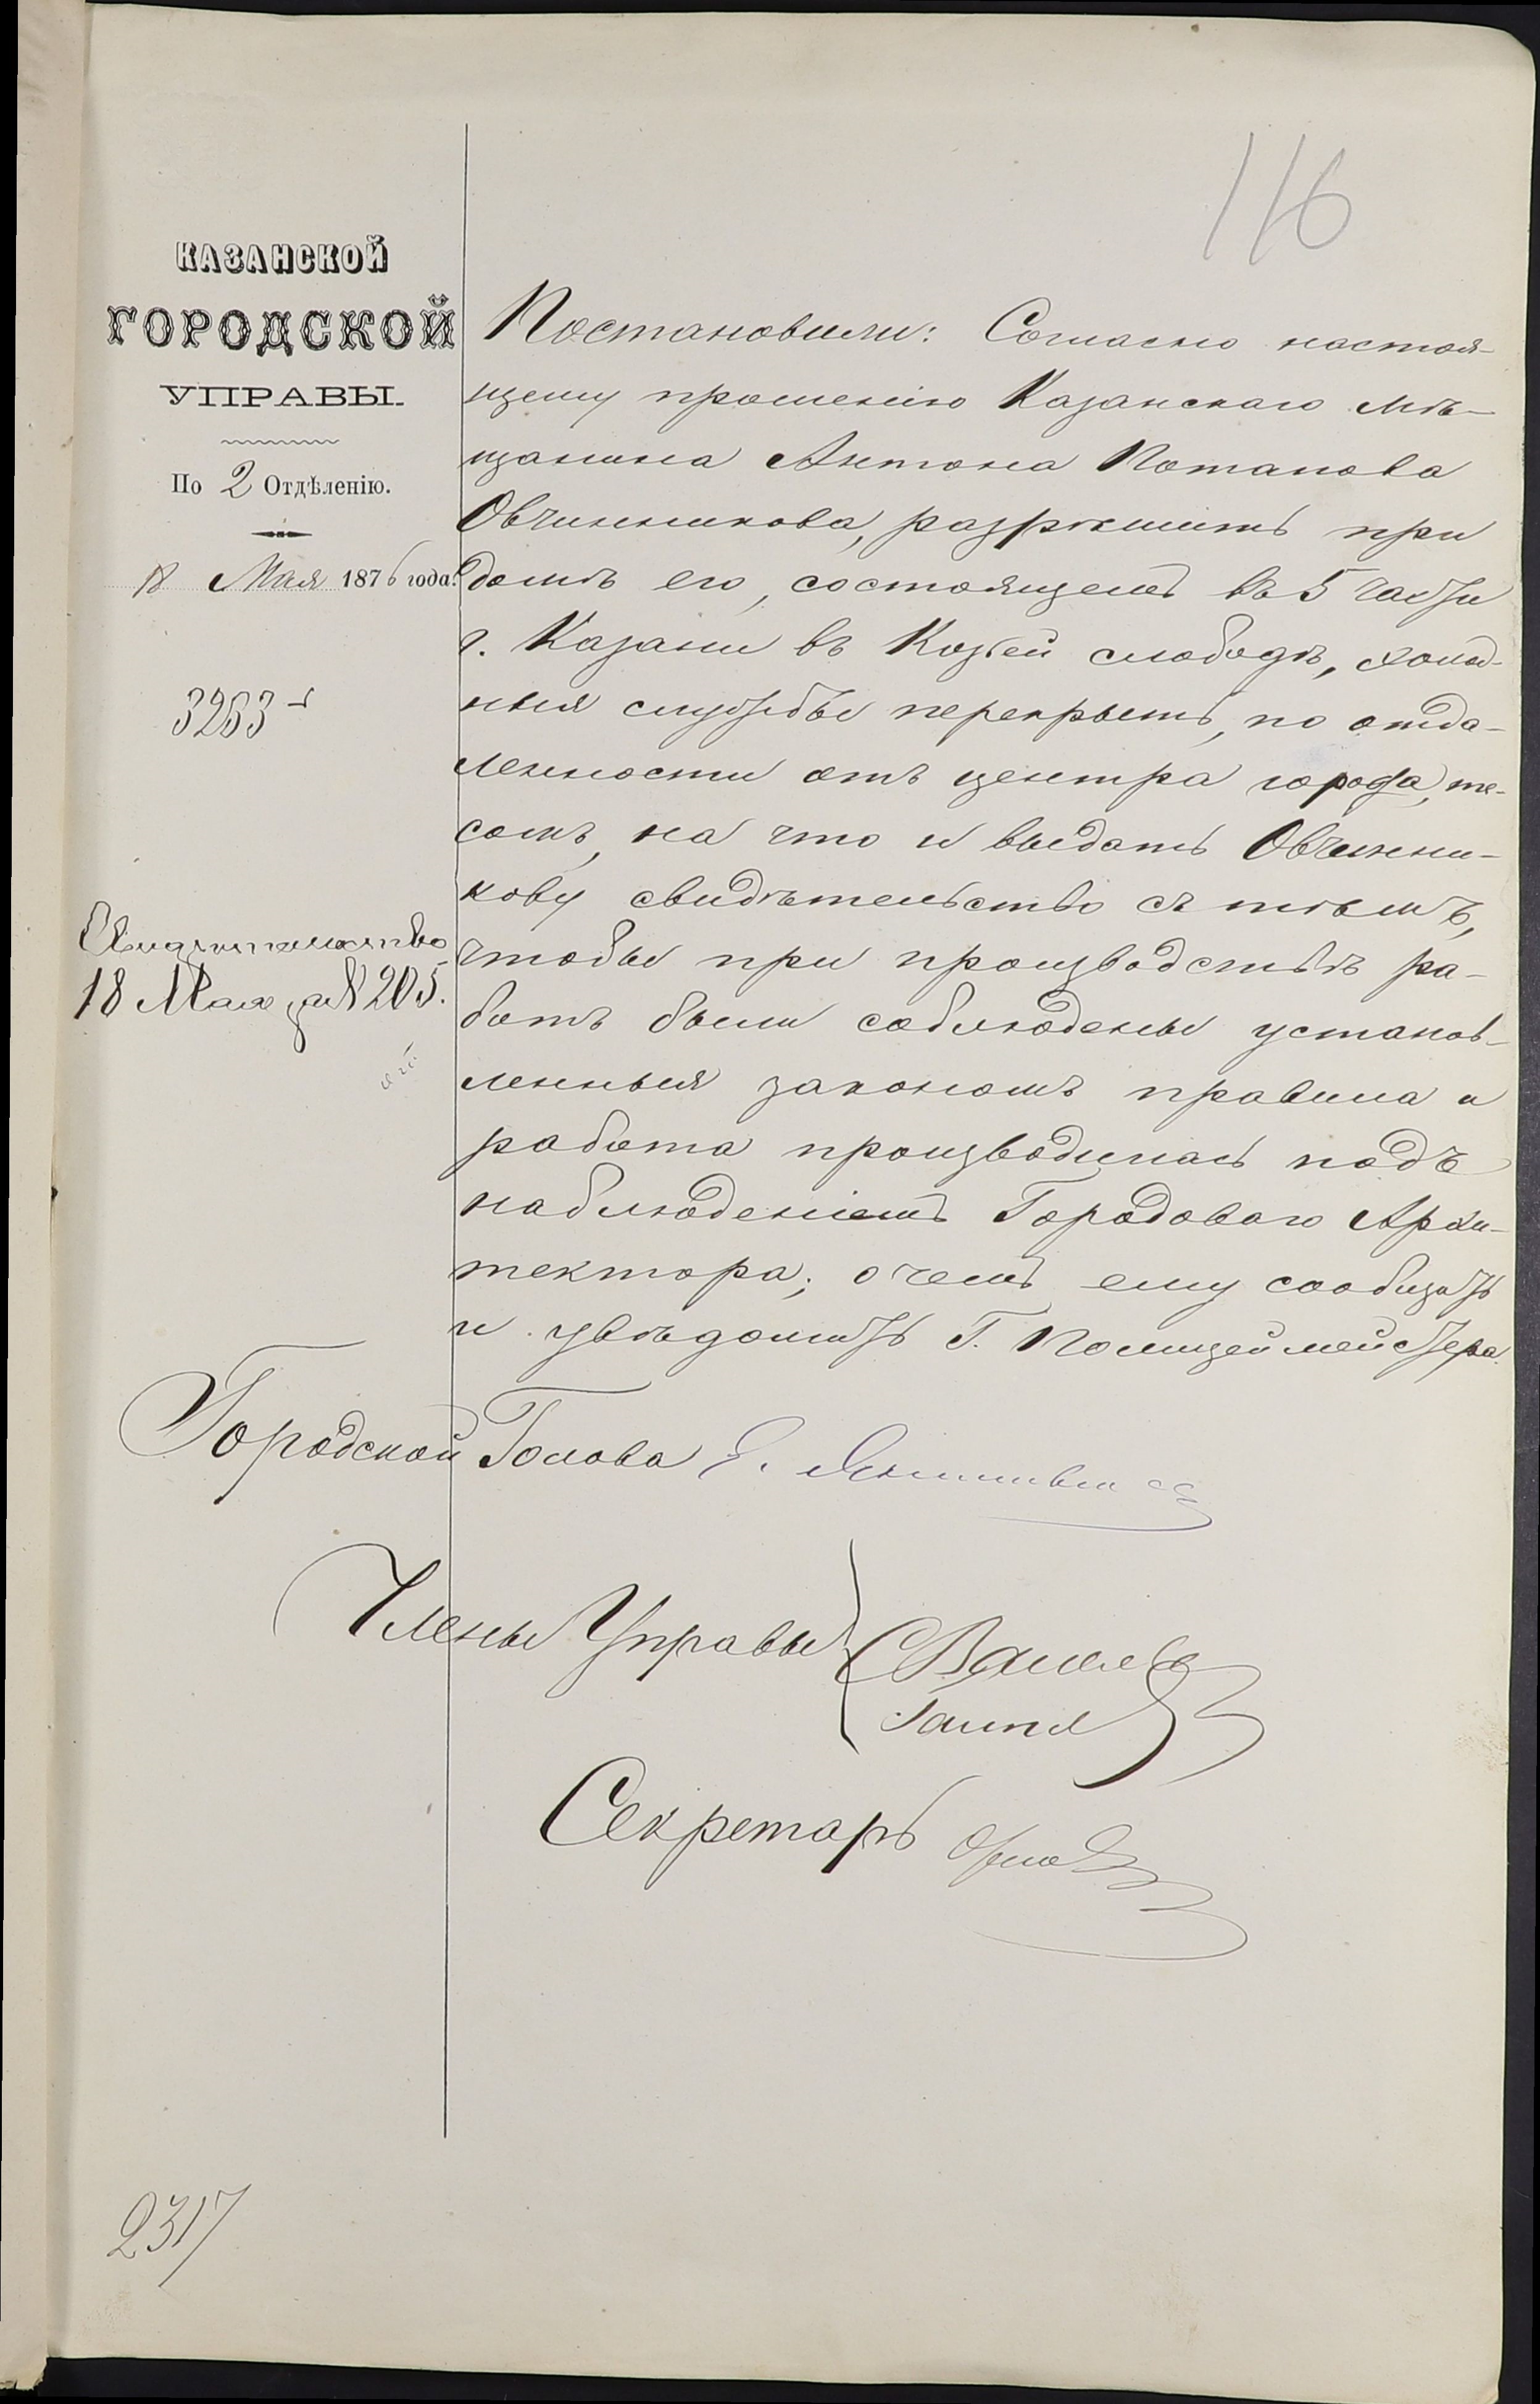 116
КАЗАНСКОЙ
ГОРОДСКОЙ
УПРАВЫ.
По 2 Отдѣленію.
18 Мая 1876 года.
3263
Свидѣтельство
18 Мая за № 205.
Постановили: Согласно настоя-
щему прошенію Казанскаго мѣ-
щанина Антона Потапова
Овчинникова, разрѣшить при
домѣ его, состоящемъ въ 5 части
г. Казани въ Козьей слободѣ, холод-
ныя службы перекрыть, по отда-
ленности отъ центра города, те-
сомъ, на что и выдать Овчинни-
кову свидѣтельство съ тѣмъ,
чтобы при производствѣ ра-
ботъ были соблюдены установ-
ленныя закономъ правила и
работа производилась подъ
наблюденіемъ Городоваго Архи-
тектора; о чемъ ему сообщить
и увѣдомить Г. Полицеймейстера.
Городской Голова Э. Янишевскій
Члены Управы
Секретарь
2317